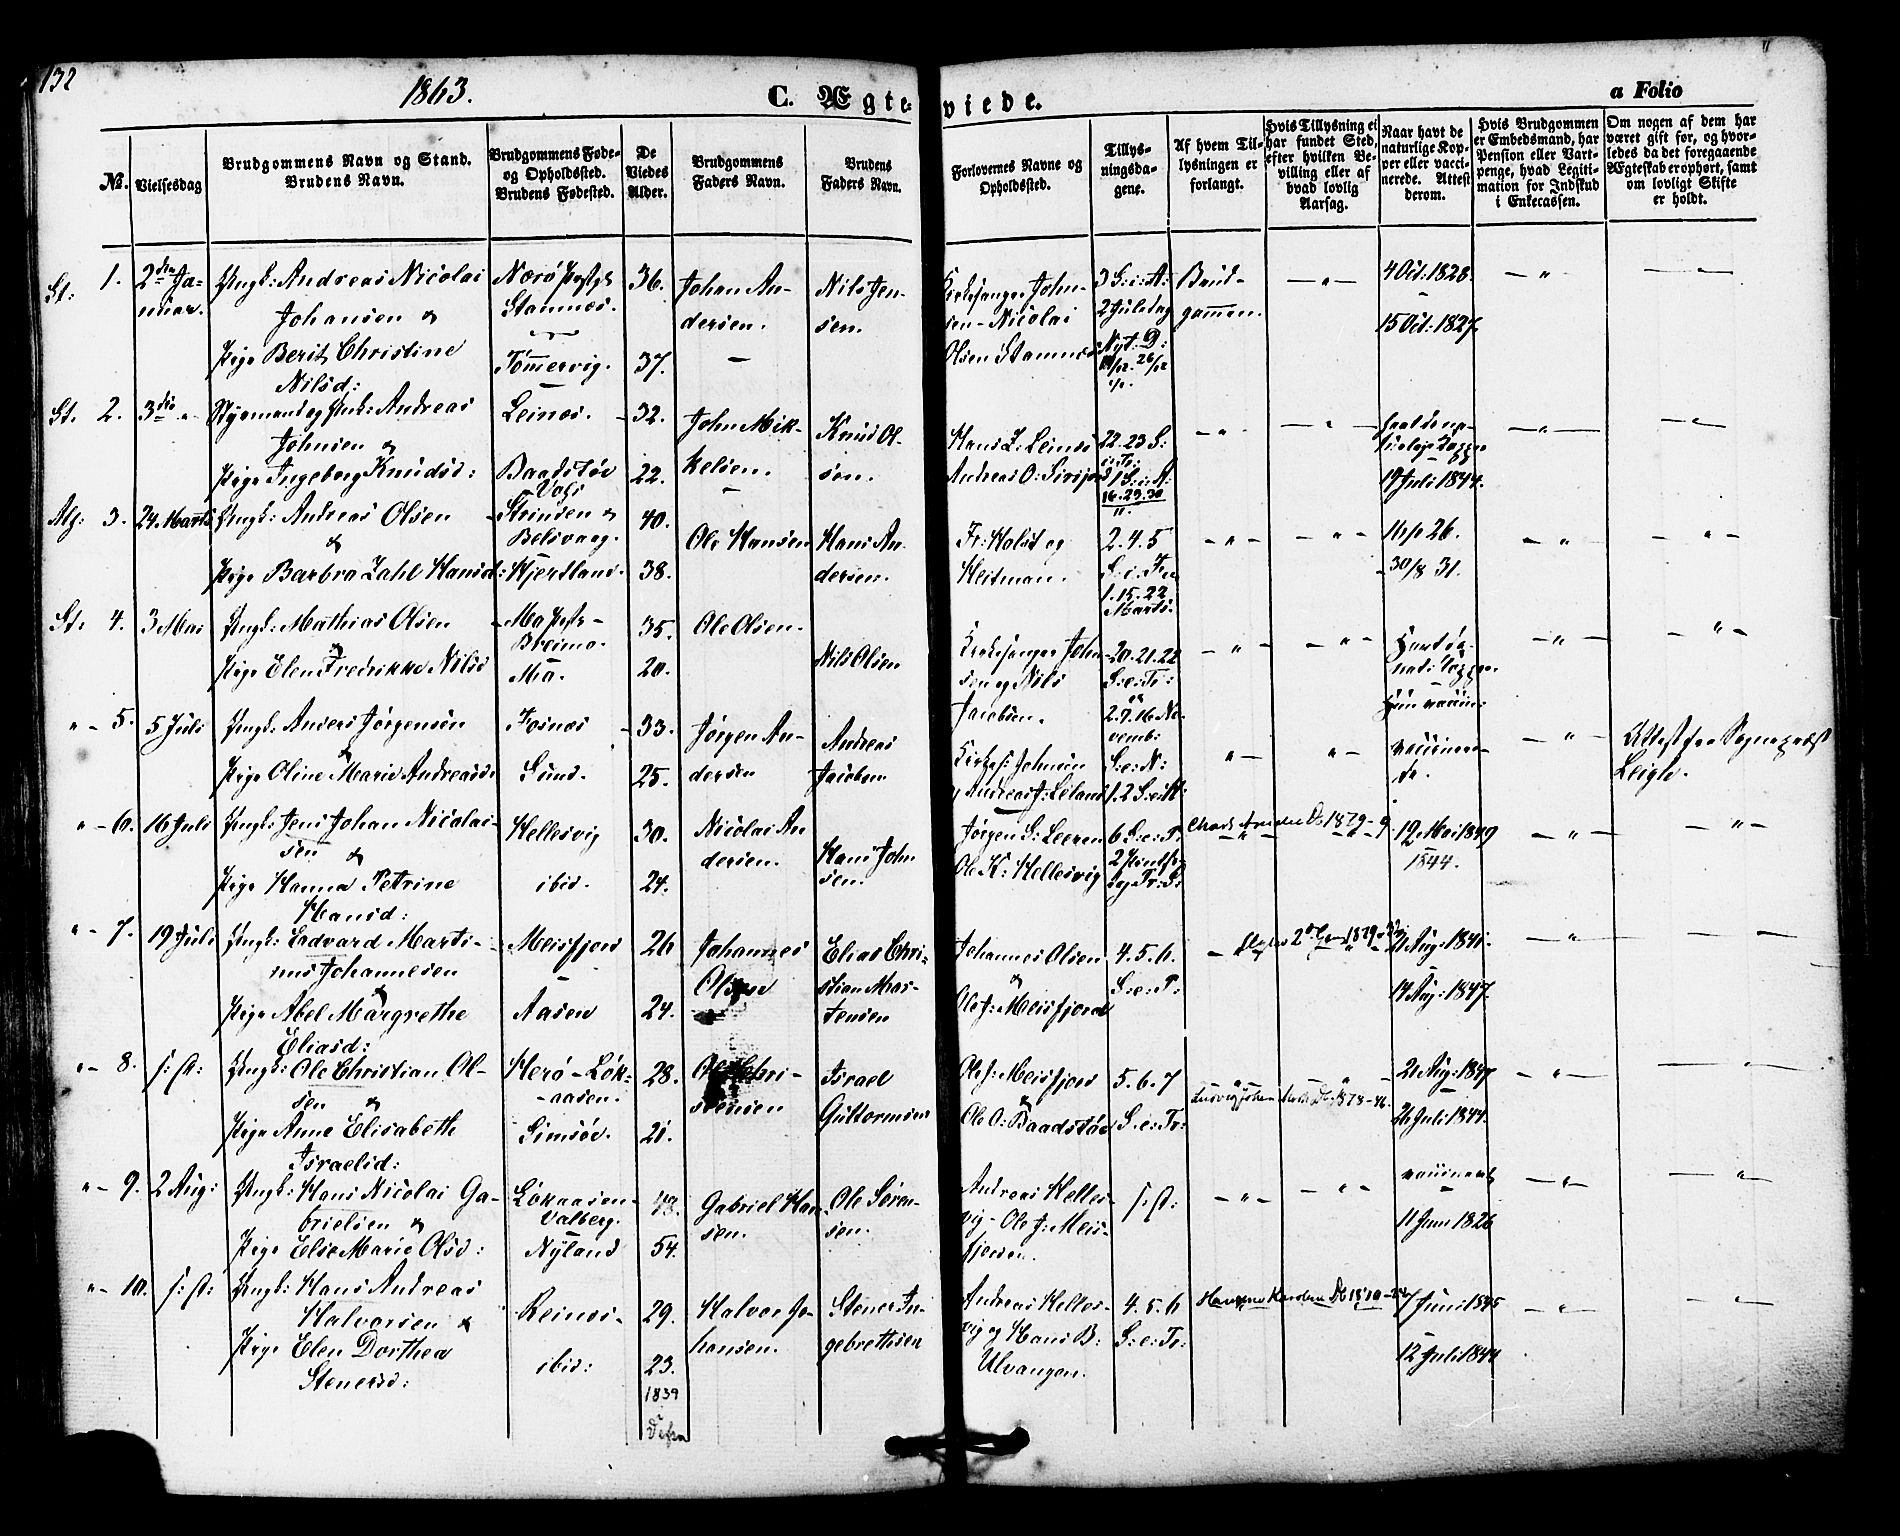 132
1863.
C. Ægteviede.
a Folio
No.
Vielsesdag
Brudgommens Navn og Stand.
Brudens Navn.
Brudgommens Føde-
og Opholdssted.
Brudens Fødested.
De
Viedes
Alder.
Brudgommens
Faders Navn.
Brudens
Faders Navn.
Forlovernes Navne og
Opholdssted.
Tillys-
ningsda-
gene.
Af hvem Til-
lysningen er
forlangt.
Hvis Tillysning ei
har fundet Sted,
efter hvilken Be-
villing eller af
hvad lovlig
Aarsag.
Naar havt de
naturlige Kop-
per eller vacci-
nerede. Attest
derom.
Hvis Brudgommen
er Embedsmand, har
Pension eller Vart-
penge, hvad Legiti-
mation for Indskud
i Enkecassen.
Om nogen af dem har
været gift før, og hvor-
ledes da det foregaaende
Ægteskab er ophørt, samt
om lovligt Skifte
er holdt.
St: 1. 2den Ja-
nuar.
Ungk: Andreas Nicolai
Johansen &
Pige Berit Christine
Nilsd:
Nærø
Stamnes.
Tömmervig.
36.
37.
Johan An-
dersen.
Nils Jen-
sen.
Kirkesanger John-
sen - Nicolai
Olsen Stamnes
3 S: i: A:
2 Juledag
Nyt: D:
26/12
Brud-
gommen.
4 Oct: 1828.
15 Oct: 1827.
St. 2. 3die "
Styrmand og Ungk: Andreas
Johnsen &
Pige Ingeborg Knudsd:
Leines.
Baadstöe
32.
22.
John Mik-
kelsen.
Knud Ol-
sen.
Hans Z: Leines
Andreas O:
22. 23 S:
e: Tr:
1 S: i: A:
19 Juli 1844.
Alst: 3. 24. Marts
Ungk: Andreas Olsen
&
Pige Barbra Zahl Hansd:
Strinden &
Belsvaag.
Hjertland.
40.
38.
Ole Hansen
Hans An-
dersen.
Fr: Holst og
Heitman.
2. 4. 5
S: i: Fa
1. 15. 22
Marts.
26.
30/8 31.
St: 4. 3 Mai
Ungk: Mathias Olsen
&
Pige Elen Fredrikke Nilsd
Breimo.
Mo.
35.
20.
Ole Olsen.
Nils Olsen
Kirkesanger John-
sen og Nils
Jacobsen.
20. 21. 22
S: e: Tr:
" - 5. 5 Juli
Ungk: Anders Jørgensen
&
Pige Oline Marie Andreasd.
Fosnes
Sund.
33.
25.
Jørgen An-
dersen
Andreas
Jacobsen
Kirkes: Johnsen
Andreas J: Leland
2. 9. 16 No-
vemb:
S: e: N:
1. 2 S: e: H:
vaccinere-
de.
Attest fra Sogneprest
Leigh.
" - 6. 16 Juli
Ungk: Jens Johan Nicolai-
sen &
Pige Hanna Petrine
Hansd:
Hellesvig
ibid.
30.
24.
Nicolai An
dersen.
Hans John
sen.
Jørgen S: Leeren
Ole K: Hellesvig
6 S: e: P:
2 Pintse-
dag Tr: S:
12 Mai 1849
1844.
" - 7. 19 Juli
Ungk: Edvard Marti-
nus Johannesen
&
Pige Abel Margrethe
Eliasd:
Meisfjord
Aasen
26
24.
Johannes
Olsen
Elias Chri-
stian Mor-
tensen
Johannes Olsen
&
Ole J: Meisfjord
4. 5. 6.
S: e: P:
21 Aug: 1841.
14 Aug: 1847.
" - 8. s: d:
Ungk: Ole Christian Ol-
sen &
Pige Anne Elisabeth
Israelsd:
Herø - Løk-
aasen.
Simsøe.
28.
21.
Ole Chri-
stensen
Israel
Guttormsen
Ole J: Meisfjord
&
Ole O: Baadstöe
5. 6. 7
S. e: Tr:
21 Aug: 1847
26 Juli 1844.
" - 9. 2 Aug:
Ungk: Hans Nicolai Ga-
brielsen &
Pige Else Marie Olsd:
Løkaasen
Valberg.
Nyland
43.
54.
Gabriel Han
sen.
Ole Søren-
sen.
Andreas Helles-
vig - Ole J: Meis-
fjorden.
s: d:
vaccineret
11 Juni 1826
" - 10. s: d:
Ungk: Hans Andreas
Halvorsen &
Pige Elen Dorthea
Stenersd:
Reines.
ibid:
29.
23.
1839
Halvor Jo-
hansen.
Stener In-
gebrethsen
Andreas Helles-
vig og Hans B:
Ulvangen.
4. 5. 6
S: e: Tr:
7 Juni 1845
12 Juli 1844